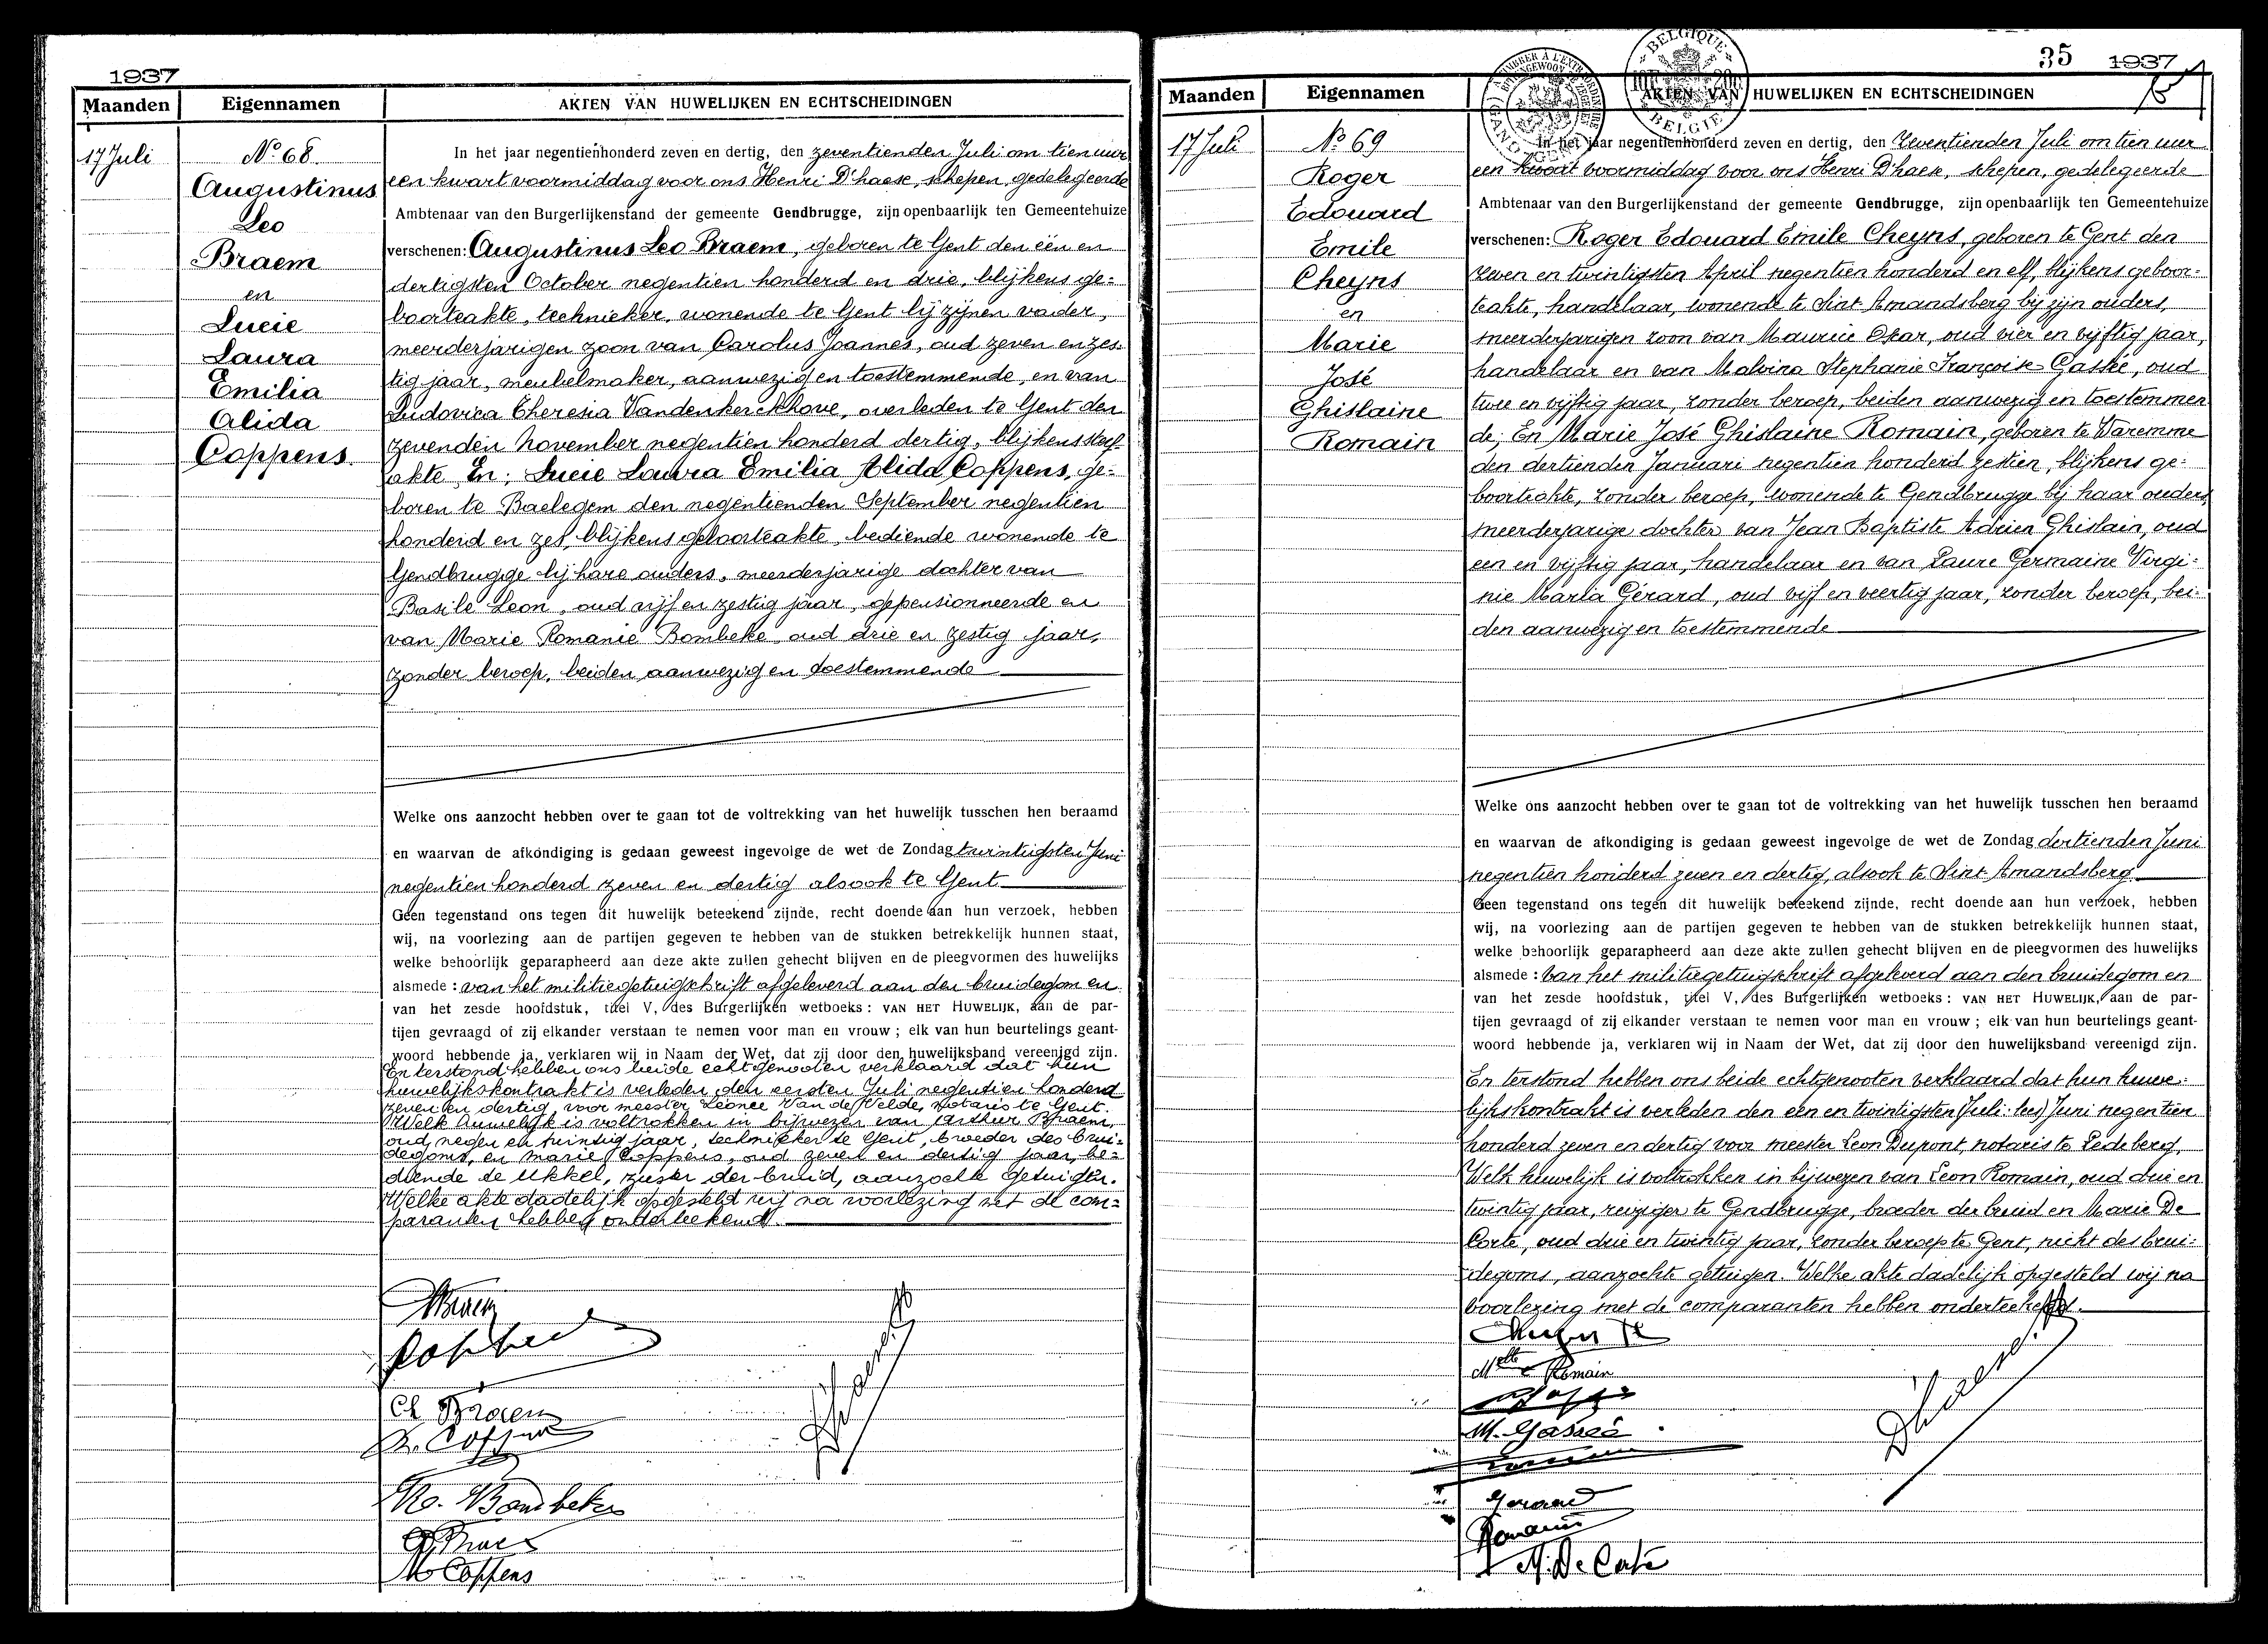 1937
Maanden Eigennamen AKTEN VAN HUWELIJKEN EN ECHTSCHEIDINGEN
17 Juli
No 68
Augustinus
Leo
Braem
en
Lucie
Laura
Emilia
Alida
Coppens.
In het jaar negentienhonderd zeven en dertig, den zeventienden Juli om tien uur
een kwart voormiddag voor ons Henri D'haese, schepen, gedelegeerde
Ambtenaar van den Burgerlijkenstand der gemeente Gendbrugge, zijn openbaarlijk ten Gemeentehuize
verschenen: Augustinus Leo Braem, geboren te Gent den één en
dertigsten October negentien honderd en drie, blijkens ge=
boorteakte, technieker, wonende te Gent bij zijnen vader,
meerderjarigen zoon van Carolus Joannes, oud zeven en zes=
tig jaar, meubelmaker, aanwezig en toestemmende, en van
Ludovica Theresia Vandenkerckhove, overleden te Gent den
zevenden November negentien honderd dertig, blijkens sterf=
akte. En; Lucie Laura Emilia Alida Coppens, ge=
boren te Baelegem den negentienden September negentien
honderd en zes, blijkens geboorteakte, bediende wonende te
Gendbrugge bij hare ouders, meerderjarige dochter van
Basile Leon, oud vijf en zestig jaar, gepensionneerde en
van Marie Romanie Bombeke oud drie en zestig jaar,
zonder beroep, beiden aanwezig en toestemmende
Welke ons aanzocht hebben over te gaan tot de voltrekking van het huwelijk tusschen hen beraamd
en waarvan de afkondiging is gedaan geweest ingevolge de wet de Zondag twintigsten Juni
negentien honderd zeven en dertig alsook te Gent
Geen tegenstand ons tegen dit huwelijk beteekend zijnde, recht doende aan hun verzoek, hebben
wij, na voorlezing aan de partijen gegeven te hebben van de stukken betrekkelijk hunnen staat,
welke behoorlijk geparapheerd aan deze akte zullen gehecht blijven en de pleegvormen des huwelijks
alsmede: van het militiegetuigschrift afgeleverd aan den bruidegom en
van het zesde hoofdstuk, titel V, des Burgerlijken wetboeks: VAN HET HUWELIJK, aan de par-
tijen gevraagd of zij elkander verstaan te nemen voor man en vrouw; elk van hun beurtelings geant-
woord hebbende ja, verklaren wij in Naam der Wet, dat zij door den huwelijksband vereenigd zijn.
En terstond hebben ons beide echtgenooten verklaard dat hun
huwelijkskontrakt is verleden den eersten Juli negentien honderd
zeven en dertig voor meester Léonce Van de Velde, notaris te Gent.
Welk huwelijk is voltrokken in bijwezen van Arthur Braem,
oud negen en twintig jaar, technieker te Gent, broeder des brui=
degoms, en Marie Coppens, oud zeven en dertig jaar, be=
diende te Ukkel, zuster der bruid, aanzochte getuigen.
Welke akte dadelijk opgesteld wij na voorlezing met de com=
paranten hebben onderteekend.
Braem
Coppens
Ch Braem
Coppens
Ro. Bombeke
Braem
M Coppens
35 1937
BELGIQUE
BELGIE
Maanden Eigennamen AKTEN VAN HUWELIJKEN EN ECHTSCHEIDINGEN
17 Juli
No 69
Roger
Edouard
Emile
Cheyns
en
Marie
José
Ghislaine
Romain
In het jaar negentienhonderd zeven en dertig, den zeventienden Juli om tien uur
een kwart voormiddag voor ons Henri D'haese, schepen, gedelegeerde
Ambtenaar van den Burgerlijkenstand der gemeente Gendbrugge, zijn openbaarlijk ten Gemeentehuize
verschenen: Roger Edouard Emile Cheyns, geboren te Gent den
zeven en twintigsten April negentien honderd en elf, blijkens geboor=
teakte, handelaar, wonende te Sint Amandsberg bij zijn ouders,
meerderjarigen zoon van Maurice Oskar, oud vier en vijftig jaar,
handelaar en van Malvina Stephanie Françoise Gaské, oud
twee en vijftig jaar, zonder beroep, beiden aanwezig en toestemmen
de; En Marie José Ghislaine Romain, geboren te Waremme
den dertienden Januari negentien honderd zestien, blijkens ge=
boorteakte, zonder beroep, wonende te Gendbrugge bij haar ouders
meerderjarige dochter van Jean Baptiste Adrien Ghislain, oud
een en vijftig jaar, handelaar en van Laure Germaine Virgi=
nie Maria Gérard, oud vijf en veertig jaar, zonder beroep, bei=
den aanwezig en toestemmende
Welke ons aanzocht hebben over te gaan tot de voltrekking van het huwelijk tusschen hen beraamd
en waarvan de afkondiging is gedaan geweest ingevolge de wet de Zondag dertienden Juni
negentien honderd zeven en dertig, alsook te Sint-Amandsberg
Geen tegenstand ons tegen dit huwelijk beteekend zijnde, recht doende aan hun verzoek, hebben
wij, na voorlezing aan de partijen gegeven te hebben van de stukken betrekkelijk hunnen staat,
welke behoorlijk geparapheerd aan deze akte zullen gehecht blijven en de pleegvormen des huwelijks
alsmede: van het militiegetuigschrift afgeleverd aan den bruidegom en
van het zesde hoofdstuk, titel V, des Burgerlijken wetboeks: VAN HET HUWELIJK, aan de par-
tijen gevraagd of zij elkander verstaan te nemen voor man en vrouw; elk van hun beurtelings geant-
woord hebbende ja, verklaren wij in Naam der Wet, dat zij door den huwelijksband vereenigd zijn.
En terstond hebben ons beide echtgenooten verklaard dat hun huwe=
lijkskontrakt is verleden den een en twintigsten (Juli: lees) Juni negentien
honderd zeven en dertig voor meester Leon Dupont, notaris te Ledeberg.
Welk huwelijk is voltrokken in bijwezen van Leon Romain, oud drie en
twintig jaar, reiziger te Gendbrugge, broeder der bruid en Marie De
Corte, oud drie en twintig jaar, zonder beroep te Gent, nicht des brui=
degoms, aanzochte getuigen. Welke akte dadelijk opgesteld wij na
voorlezing met de comparanten hebben onderteekend.
Cheyns R
Melle Romain
M. Gaské
Gerard
Romain
M. De Corte